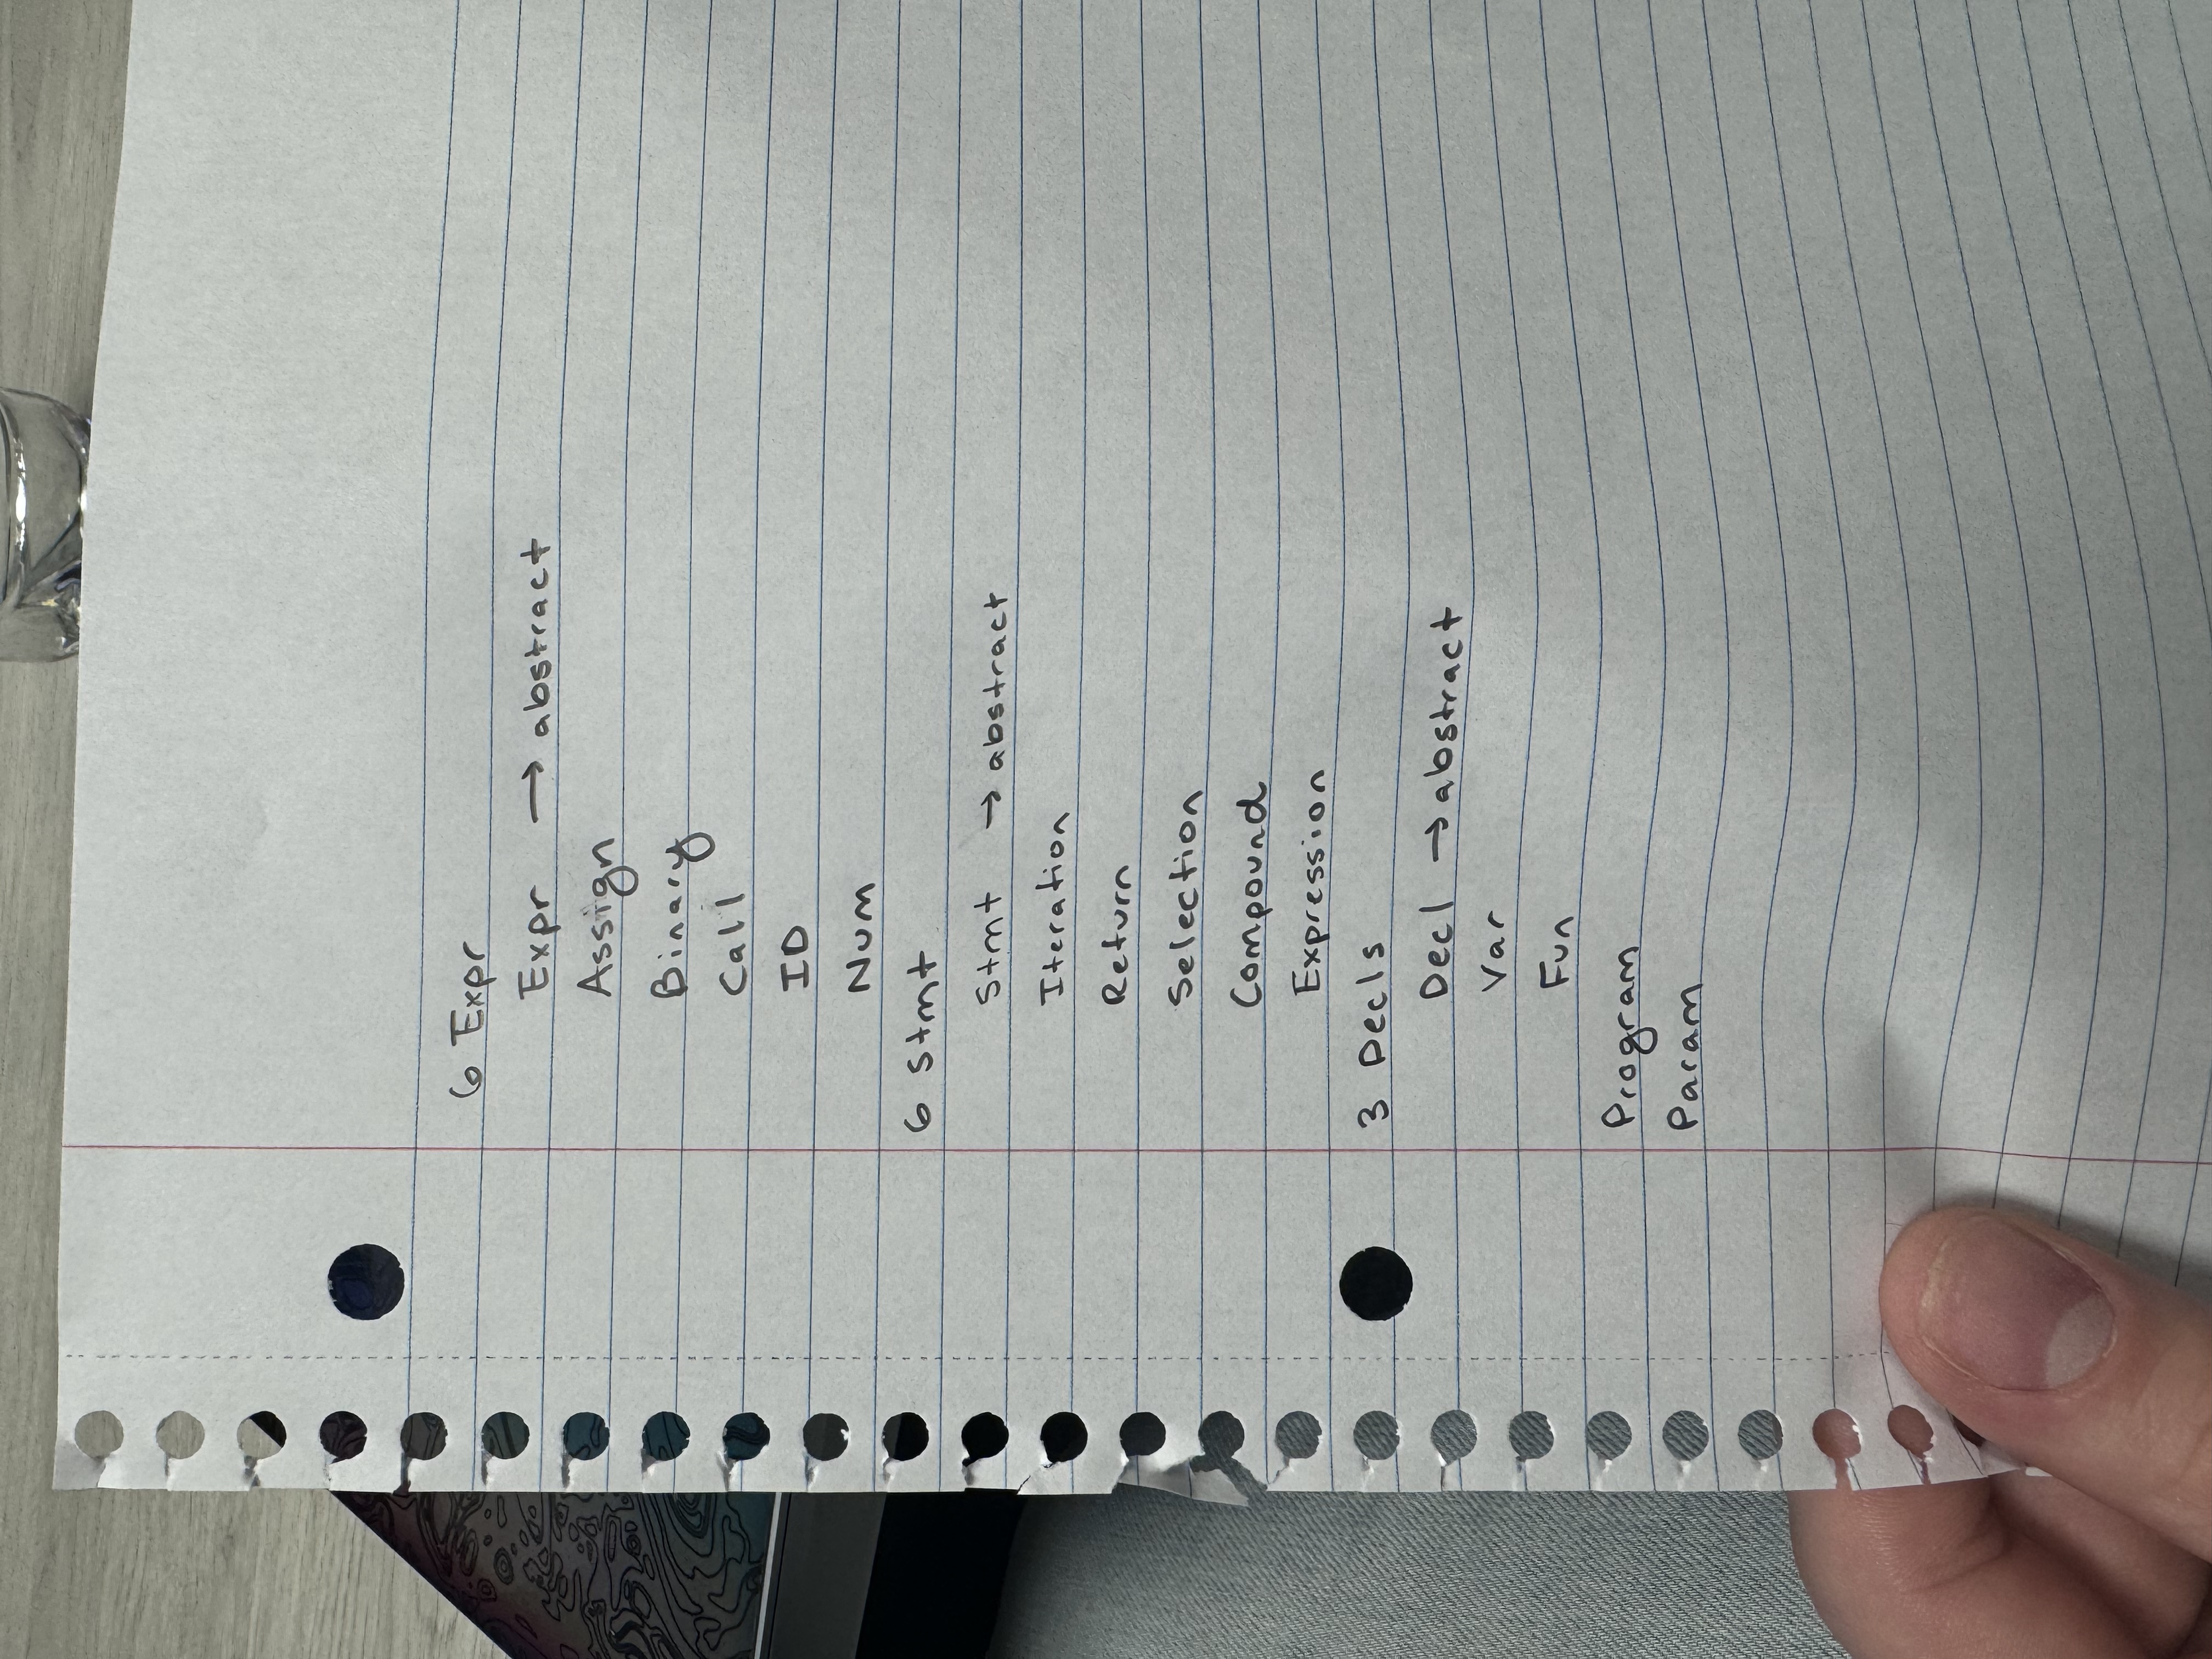 6 Expr
Expr → abstract
Assign
Binary
Call
ID
Num
6 Stmt
Stmt → abstract
Iteration
Return
Selection
Compound
Expression
3 Decls
Decl → abstract
Var
Fun
Program
Param